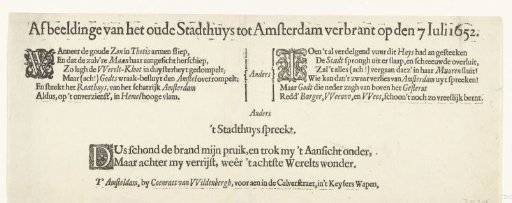 Afbeeldinge van het oude Stadthuys tot Amsterdam verbrant op den 7 Iuli 1652.
WAnneer de goude Zon in Thetis armen sliep,
En dat de zulv're Maan haar aangesicht herschiep,
Zo lagh de VVerelt-Kloot in duysterheyt gedompelt;
Maar (ach!) Godts wraak-besluyt den Amstel overrompelt;
En steekt het Raathuys, van het schatrijk Amsterdam
Aldus, op 't onverzienst', in Hemelhooge vlam.
Anders
TOen 't al verdelgend vour dit Huys had angesteeken
De Stadt sprongh uit er slaap, en schreeuwde overluit,
Zal 't alles (ach!) vergaan dat z' in haar Muuren sluit!
Wie kan dan 't zwaar verlies van Amsterdam uyt spreeken!
Maar Godt die neder zagh van boven het Gesternt
Redd' Burger, VVeeuw, en VVees, schoon't noch zo vreeslijk bernt.
Anders
't Stadthuys spreekt.
DUs schond de brand mijn pruik, en trok my 't Aansicht onder,
Maar achter my verrijst, weêr 't achtste Werelts wonder.
T' Amsteldam, by Coenraet van VVildenbergh, voor aen in de Calverstraet, in't Keysers Wapen,